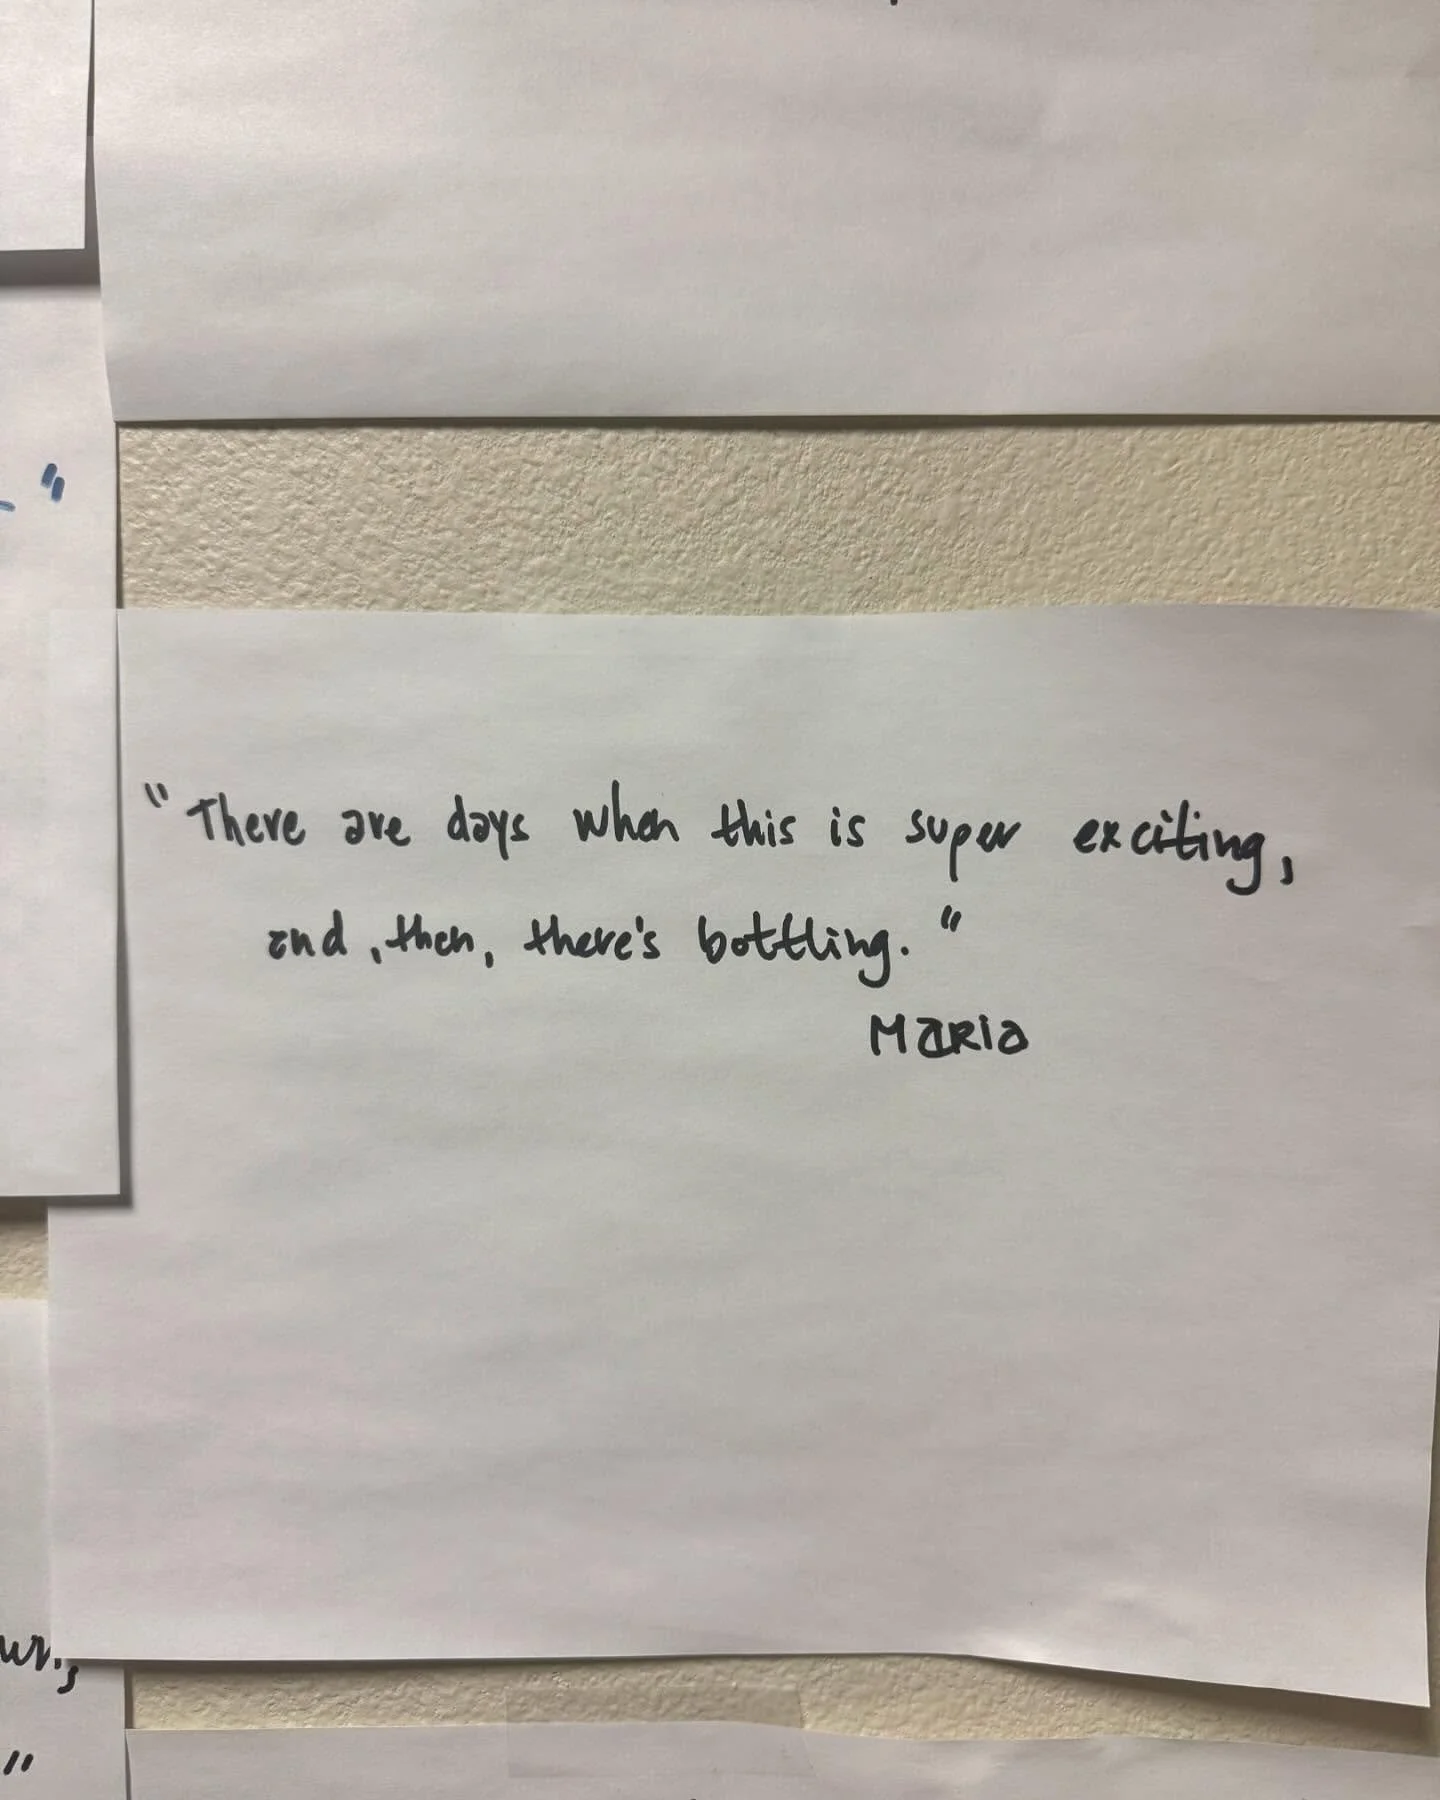 "There are days when this is super exciting,
and, then, there's bottling."
Maria
"
"